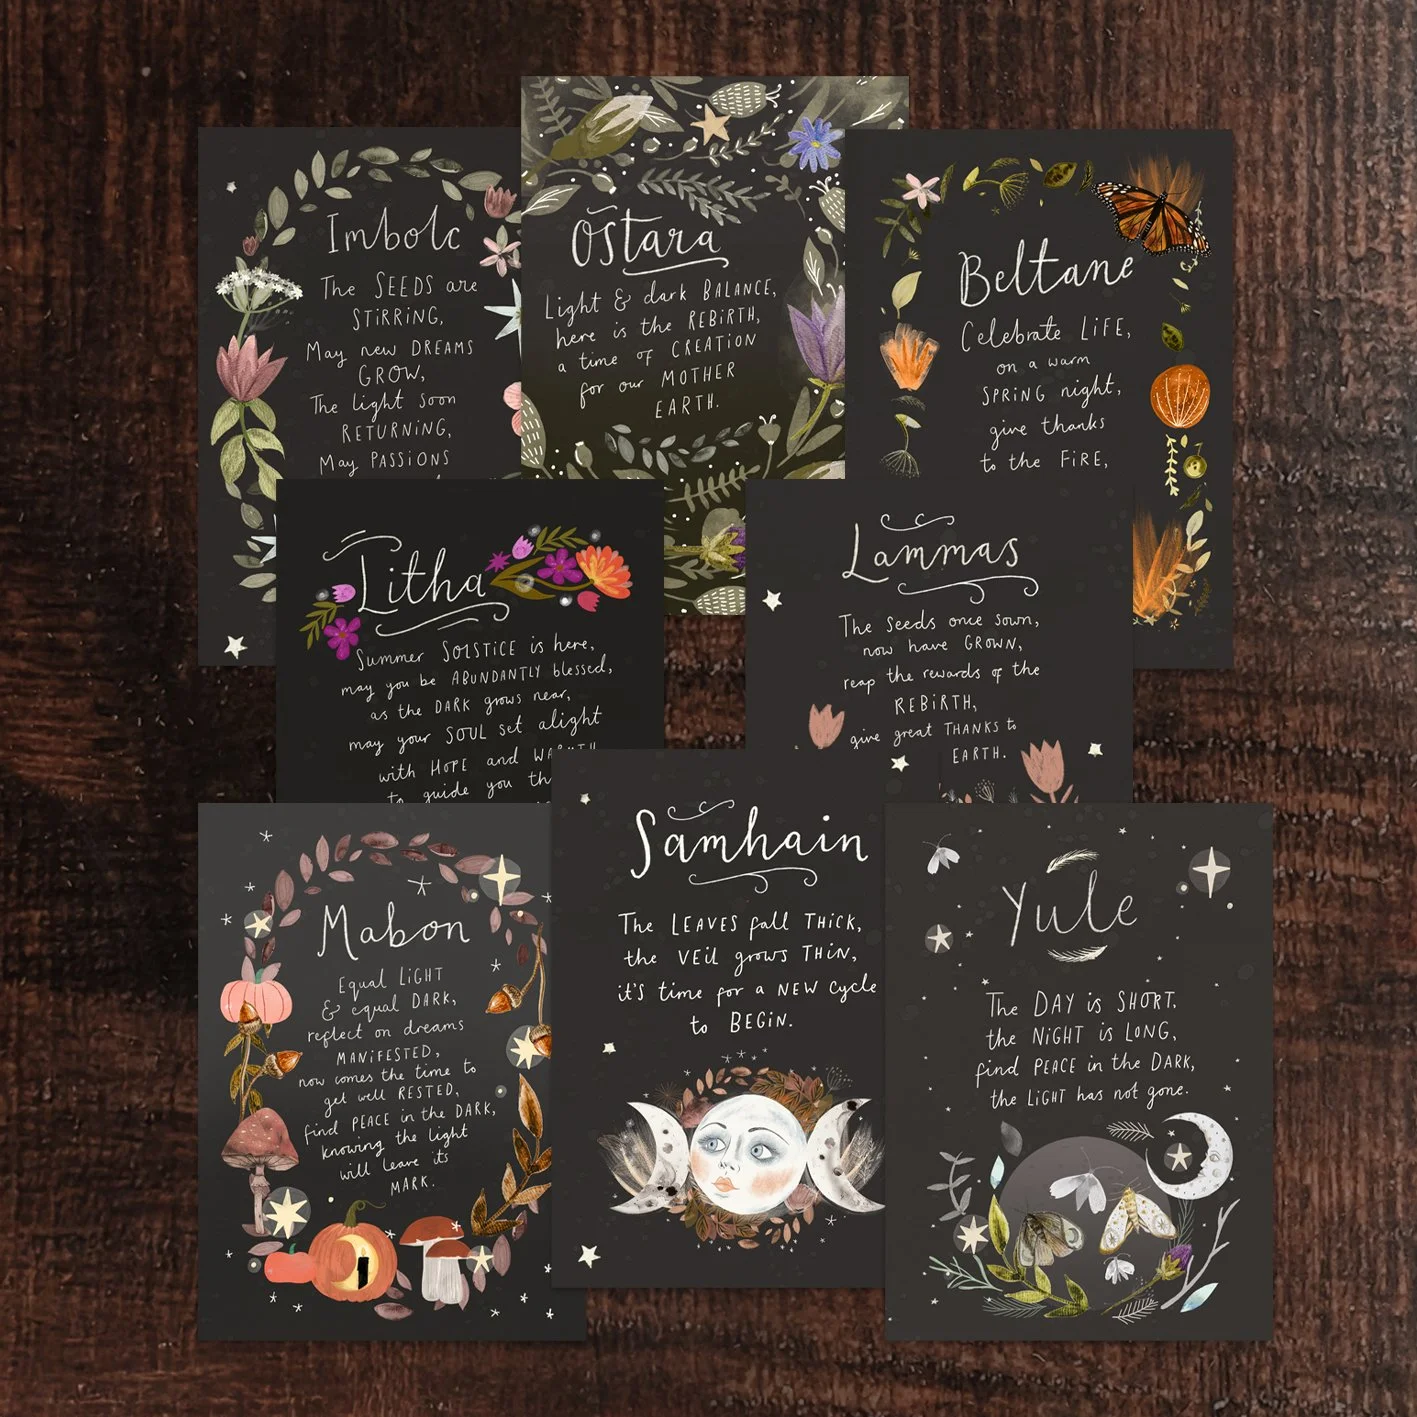 Imbolc
The SEEDS are
STIRRING,
May new DREAMS
GROW,
The light soon
RETURNING,
May PASSIONS
Ostara
Light & dark BALANCE,
here is the REBIRTH,
a time of CREATION
for our MOTHER
EARTH.
Beltane
Celebrate LIFE,
on a warm
SPRING night,
give thanks
to the FIRE,
Litha
Summer SOLSTICE is here,
may you be ABUNDANTLY blessed,
as the DARK grows near,
may your SOUL set alight
with HOPE and WARMTH
to guide you
Lammas
The Seeds once sown,
now have GROWN,
reap the rewards of the
REBIRTH,
give great THANKS to
EARTH.
Mabon
Equal LIGHT
& equal DARK,
reflect on dreams
MANIFESTED,
now comes the time to
get well RESTED,
find PEACE in the DARK,
knowing the light
will leave its
MARK.
Samhain
The LEAVES fall THICK,
the VEIL grows THIN,
it's time for a NEW cycle
to BEGIN.
Yule
The DAY is SHORT,
the NIGHT is LONG,
find PEACE in the DARK,
the LIGHT has not gone.